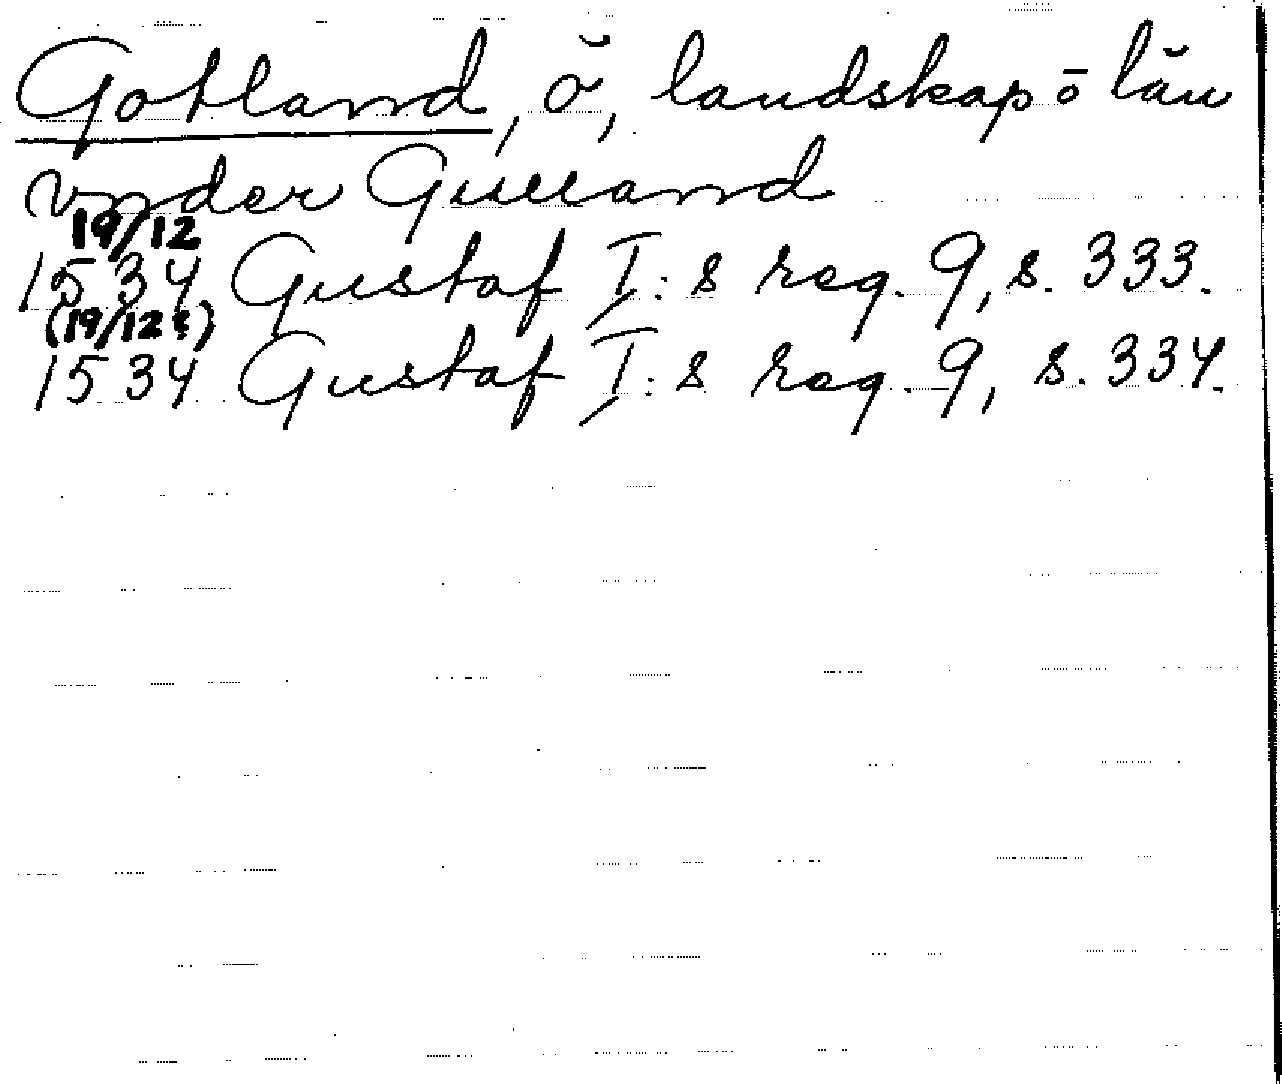 Gotland, ö, landskap o län
vnder Gulland
19/12
1534 Gustaf I:s reg. 9, s. 333.
(19/12?)
1534 Gustaf I:s reg. 9, s. 334.